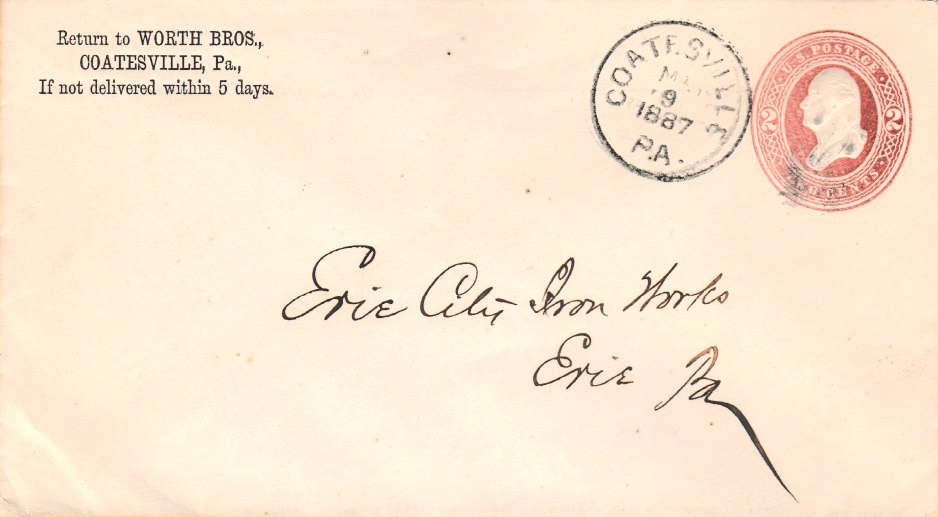 Return to WORTH BROS.,
COATESVILLE, Pa.,
If not delivered within 5 days.
COATESVILLE
9
1887
PA.
U.S. POSTAGE
2 2
CENTS
Erie City Iron Works
Erie Pa